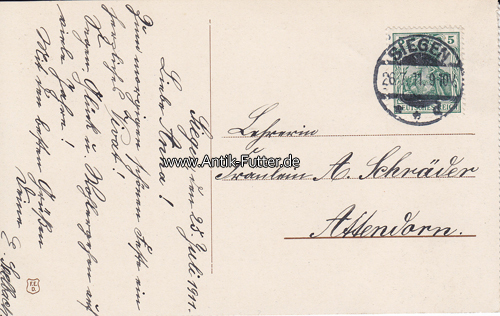 Siegen, den 25. Juli 1911.
Liebe Anna!
Zum morgigen schönen Feste ein
herzliches Vivat!
Segen, Glück u. Wohlergehen auf
viele Jahre!
Mit den besten Grüßen
Deine
E.
5
SIEGEN
26.7.11. 9-10V
Lehrerin
Fräulein A. Schräder
Attendorn.
www.Antik-Futter.de